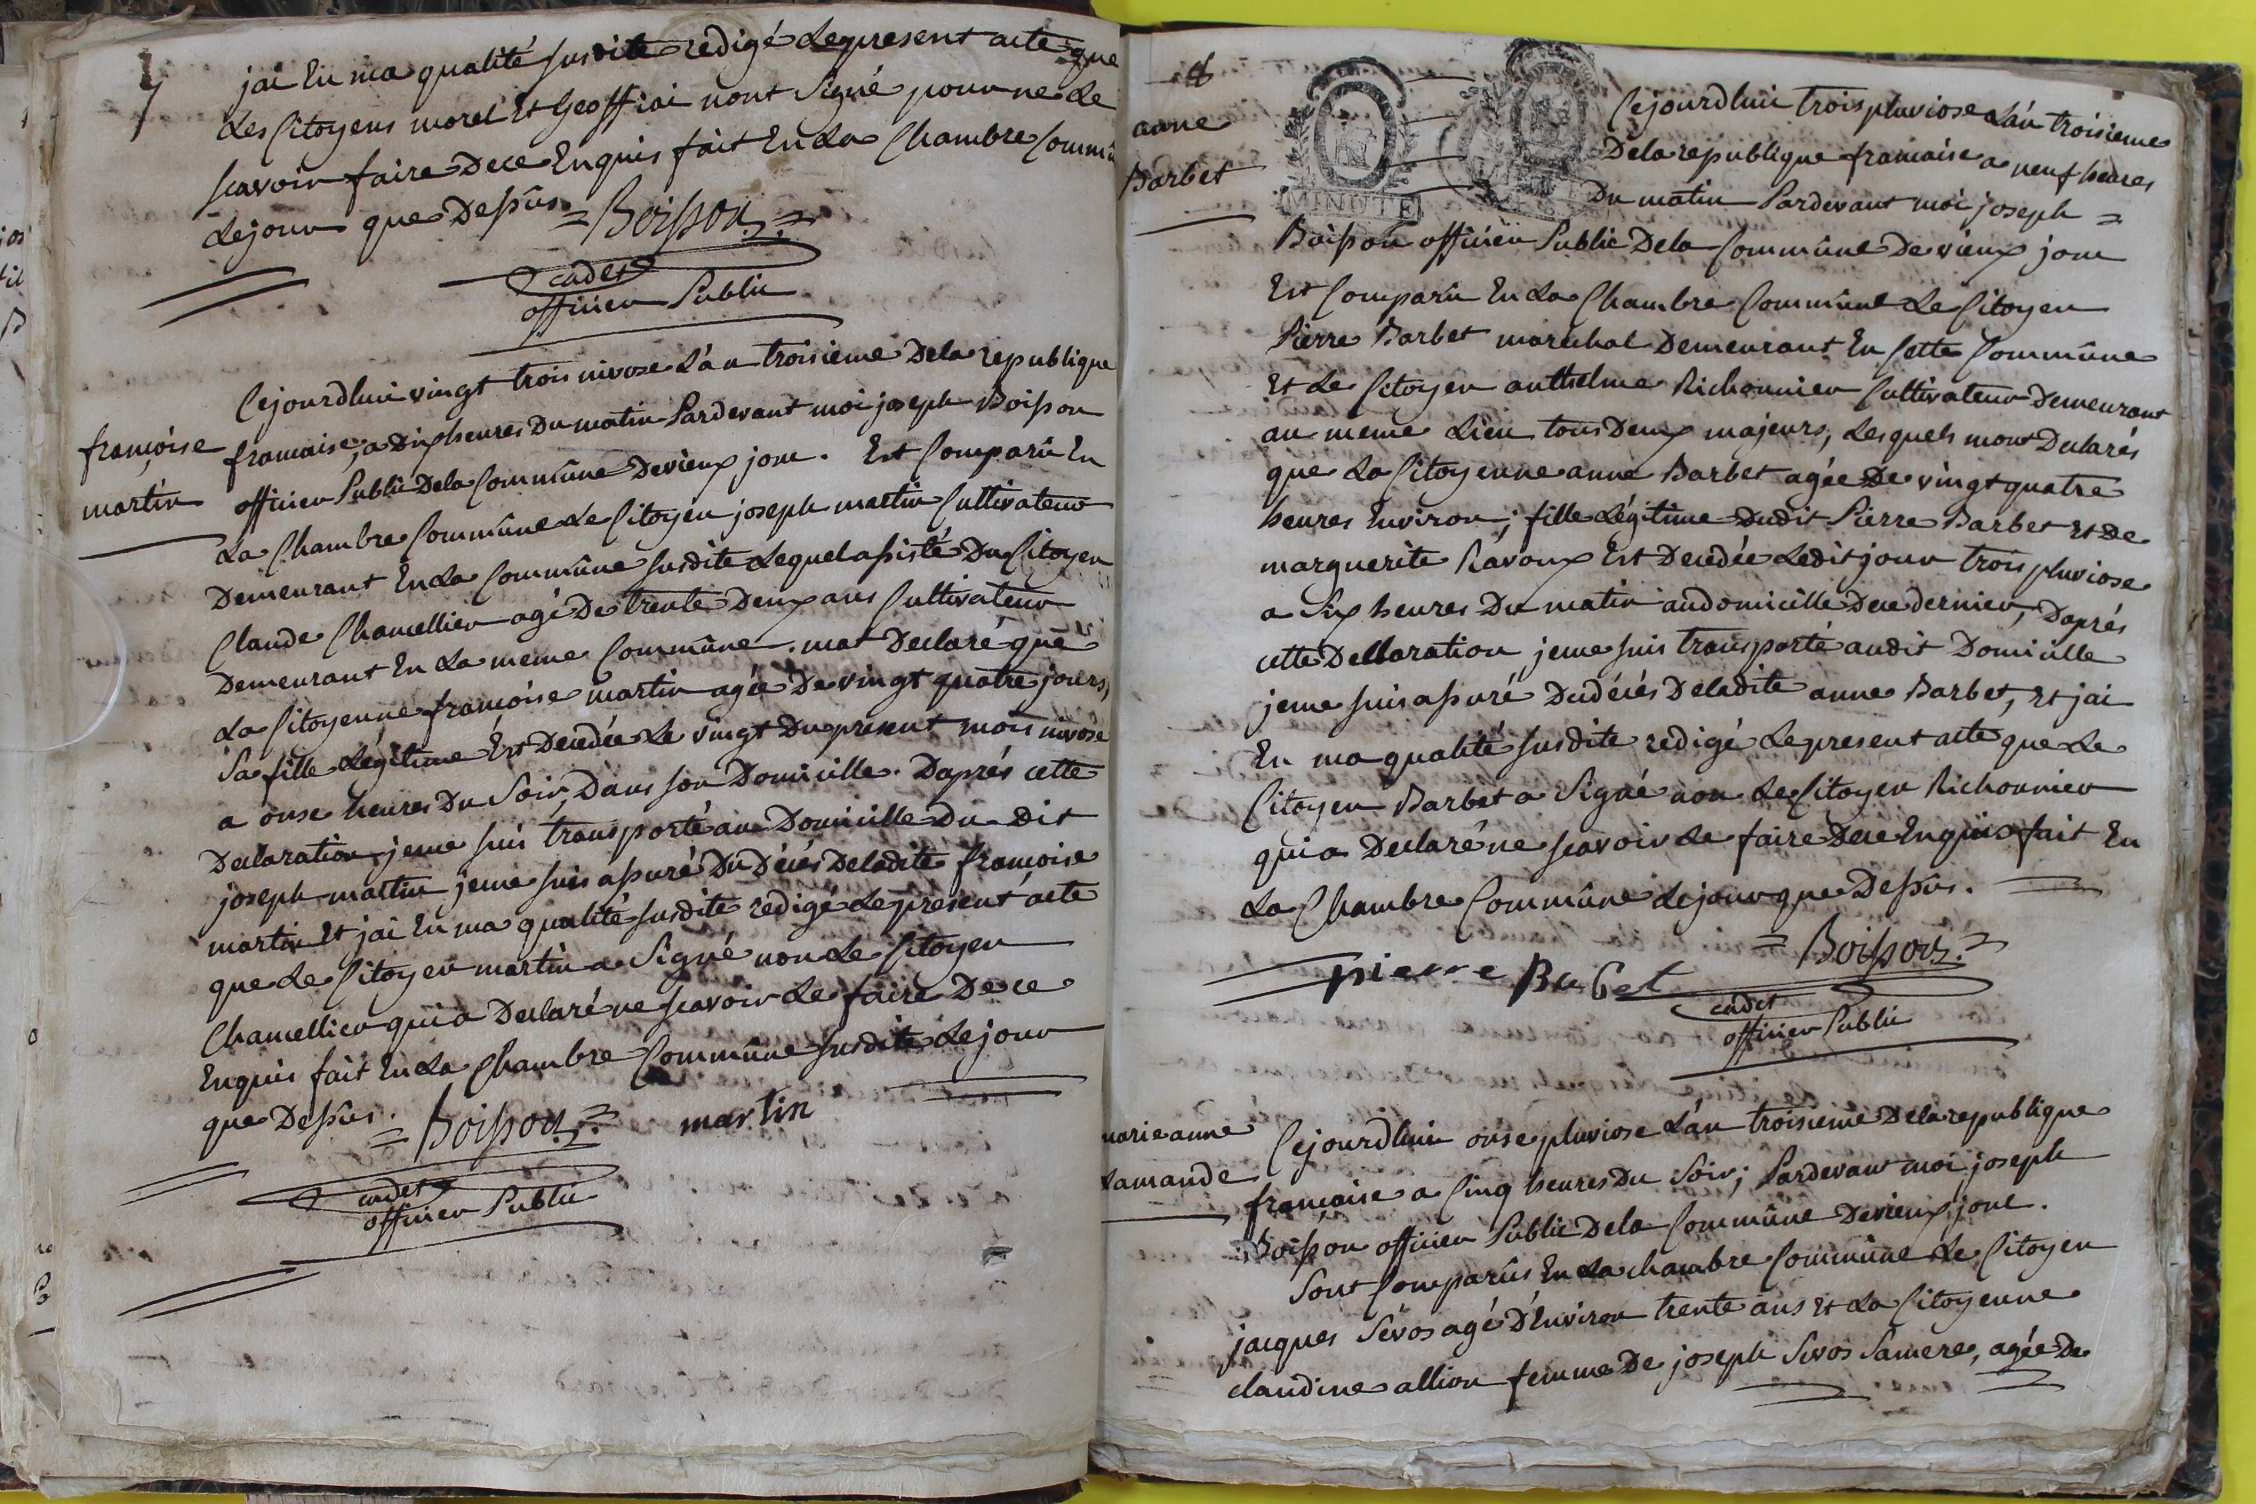 jai En ma qualité susdite redigé Le present acte que
Les Citoyens morel Et Geoffrai nont Signé pour ne Le
scavoir faire De ce Enquis fait En La Chambre Commû
Le jour que Dessûs = Boisson =
cadet
officier Public
Cejourdhui vingt trois nivose L'an troisieme De la republique
françoise
francaise, a Dix heures Du matin Pardevant moi joseph Boisson
martin
officier Public De la Commûne De vieux joue. Est Comparû En
La Chambre Commûne Le Citoyen joseph martin Cultivateur
Demeurant En La Commûne susdite Lequel assisté Du Citoyen
Claude Chamellier agé De trente Deux ans Cultivateur
Demeurant En La meme Commûne. mat Declaré que
La Citoyenne françoise martin agée De vingt quatre jours,
Sa fille Légitime Est Decedée Le vingt Du present mois nivose
a onse heures Du Soir, Dans son Domicille. Daprés cette
Declaration jeme suis transporté au Domicille Du Dit
joseph martin jeme suis assuré Du Décés De ladite françoise
martin Et jai En ma qualité susdite rédigé Le present acte
que Le Citoyen martin a Signé non Le Citoyen
Chamellier qui a Declaré ne scavoir Le faire De ce
Enquis fait En La Chambre Commûne susdite Le jour
que Dessûs. = Boisson = martin
cadet
officier Public
8
Cejourdhui trois pluviose L'an troisieme
anne
De la republique francaise a neuf heures
Barbet
MINUTE
Du matin Pardevant moi joseph =
Boisson officier Public De la Commûne De vieux joue
Est Comparû En La Chambre Commûne Le Citoyen
Pierre Barbet marechal Demeurant En Cette Commûne
Et Le Citoyen anthelme Richonnier Cultivateur Demeurant
au meme Lieu tous Deux majeurs, Lesquels mont Declarés
que La Citoyenne anne Barbet agée De vingt quatre
heures Environ; fille Légitime Dudit Pierre Barbet Et De
marguerite Ravoux Est Decedée Ledit jour trois pluviose
a Six heures Du matin au domicille De ce dernier, Daprés
cette Declaration jeme suis transporté audit Domicille
jeme suis assuré Du décés De ladite anne Barbet, Et jai
En ma qualité susdite redigé Le present acte que Le
Citoyen Barbet a Signé non Le Citoyen Richonnier
qui a Declaré ne scavoir Le faire De ce Enquis fait En
La Chambre Commûne Le jour que Dessûs.
= Boisson =
pierre Barbet
cadet
officier Public
marie anne
Cejourdhui onse pluviose L'an troisieme De la republique
Lamande
francaise a Cinq heures Du Soir; Pardevant moi joseph
Boisson officier Public De la Commûne De vieux joue.
Sont Comparûs En La Chambre Commûne Le Citoyen
jacques Sévos agé D'Environ trente ans Et La Citoyenne
claudine allion femme De joseph Sevos Sa mere, agée De